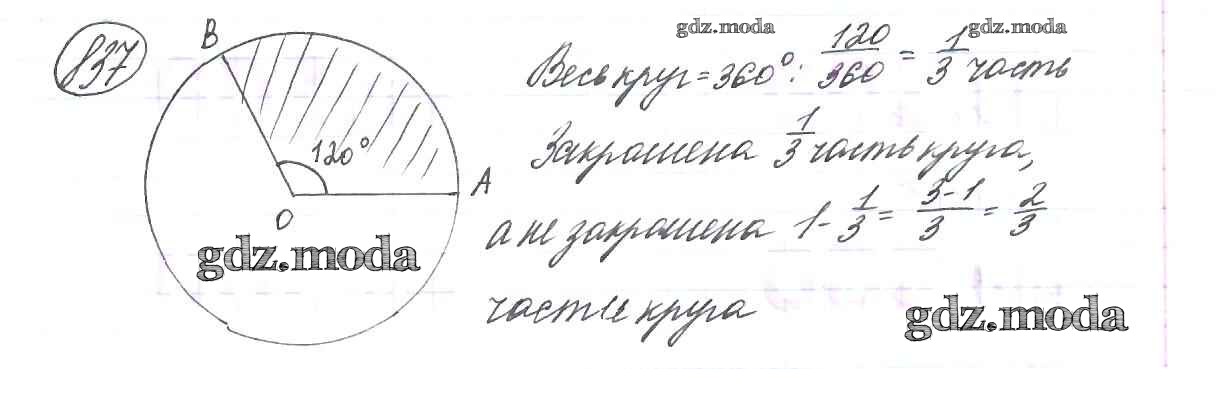 837
B
120°
A
O
gdz.moda
gdz.moda gdz.moda
Весь круг = 360°: 120/360 = 1/3 часть
Закрашена 1/3 часть круга,
а не закрашена 1 - 1/3 = 3-1/3 = 2/3
части круга
gdz.moda